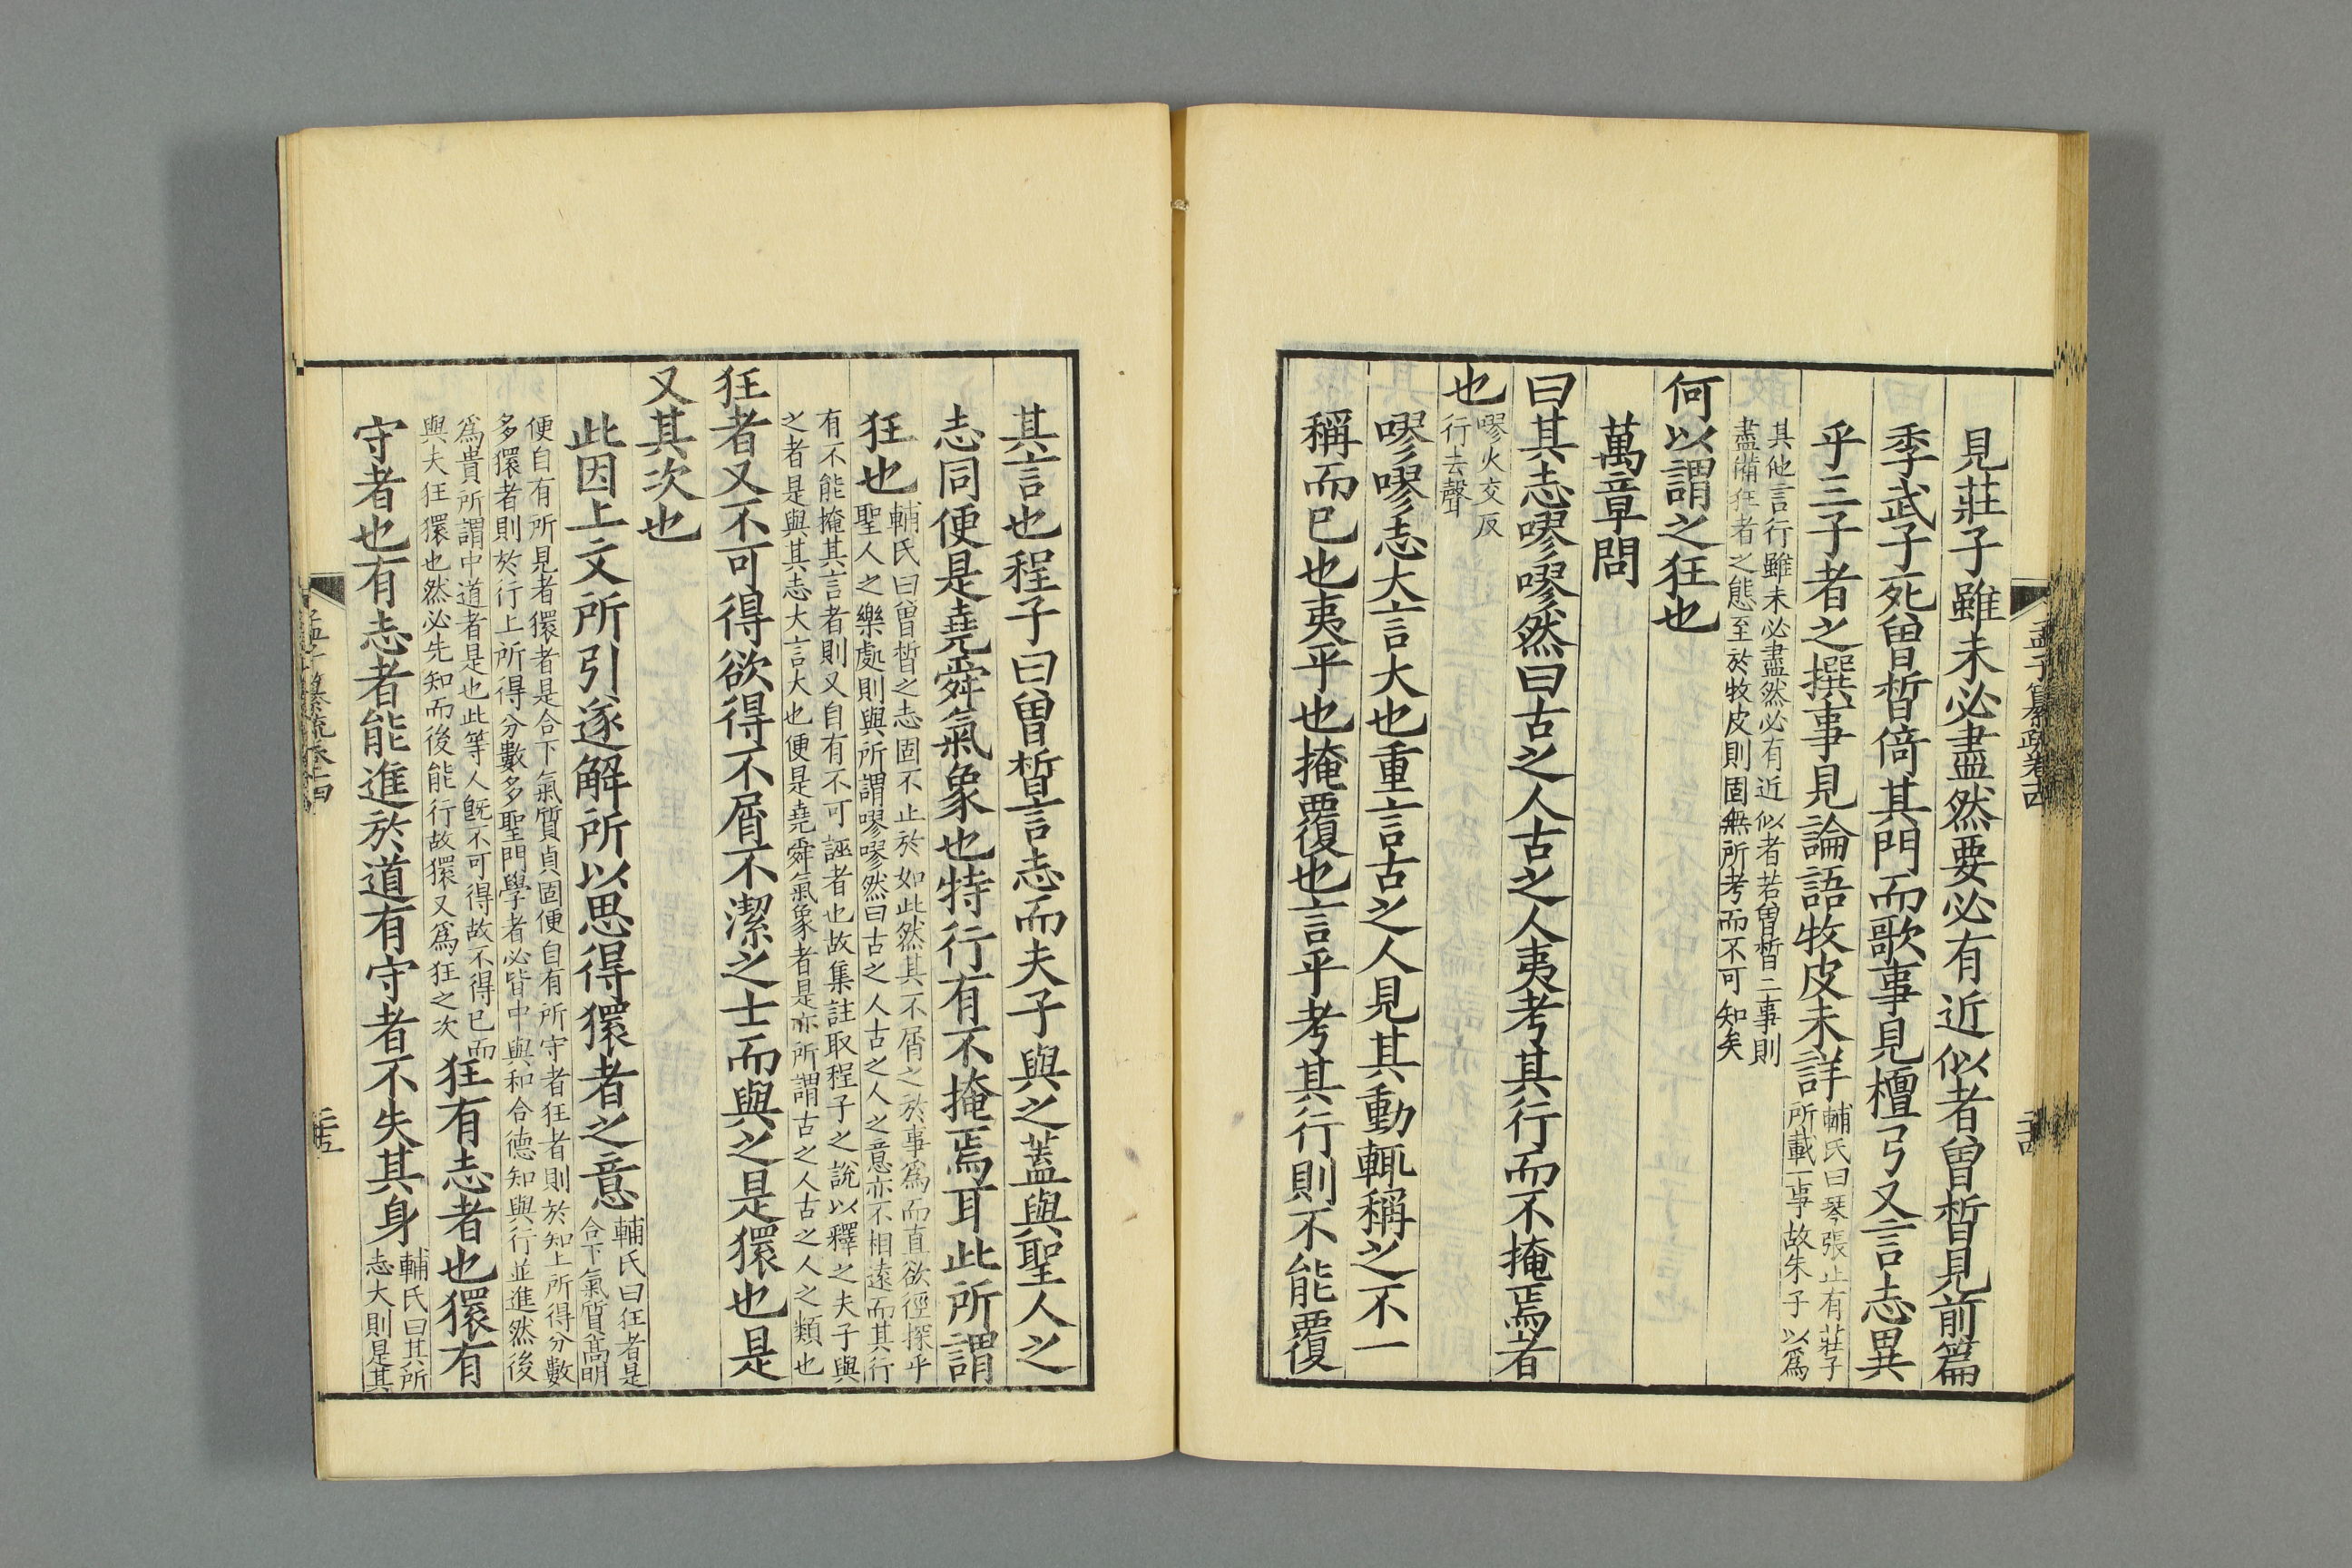 孟子纂疏卷十四
二十四
見莊子雖未必盡然要必有近似者曾晳見前篇
季武子死曾晳倚其門而歌事見檀弓又言志異
乎三子者之撰事見論語牧皮未詳
輔氏曰琴張止有莊子
所載一事故朱子以爲
其他言行雖未必盡然必有近似者若曾晳二事則
盡備狂者之態至於牧皮則固無所考而不可知矣
何以謂之狂也
萬章問
曰其志嘐嘐然曰古之人古之人夷考其行而不掩焉者
也
嘐火交反
行去聲
嘐嘐志大言大也重言古之人見其動輒稱之不一
稱而已也夷平也掩覆也言平考其行則不能覆
其言也程子曰曾晳言志而夫子與之蓋與聖人之
志同便是堯舜氣象也特行有不掩焉耳此所謂
狂也
輔氏曰曾晳之志固不止於如此然其不屑之於事爲而直欲徑探乎
聖人之樂處則與所謂嘐嘐然曰古之人古之人之意亦不相遠而其行
有不能掩其言者則又自有不可誣者也故集註取程子之說以釋之夫子與
之者是與其志大言大也便是堯舜氣象者是亦所謂古之人古之人之類也
狂者又不可得欲得不屑不潔之士而與之是獧也是
又其次也
此因上文所引遂解所以思得獧者之意
輔氏曰狂者是
合下氣質高明
便自有所見者獧者是合下氣質貞固便自有所守者狂者則於知上所得分數
多獧者則於行上所得分數多聖門學者必皆中與和合德知與行並進然後
爲貴所謂中道者是也此等人旣不可得故不得已而
與夫狂獧也然必先知而後能行故獧又爲狂之次
狂有志者也獧有
守者也有志者能進於道有守者不失其身
輔氏曰其所
志大則是其
孟子纂疏卷十四
二十五